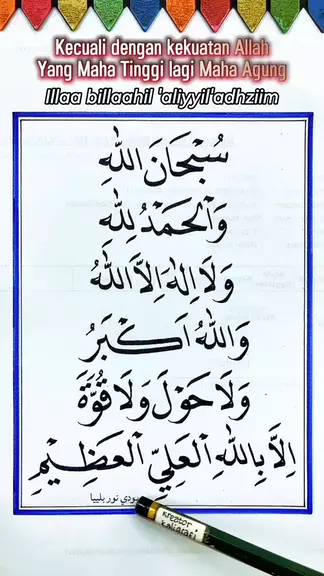 Kecuali dengan kekuatan Allah
Yang Maha Tinggi lagi Maha Agung
Illaa billaahil 'aliyyil'adhziim
سُبْحَانَ اللّٰهِ
وَالْحَمْدُ لِلّٰهِ
وَلَا اِلٰهَ اِلَّا اللّٰهُ
وَاللّٰهُ اَكْبَرُ
وَلَا حَوْلَ وَلَا قُوَّةَ
اِلَّا بِاللّٰهِ الْعَلِيِّ الْعَظِيْمِ
kreator
kaligrafi